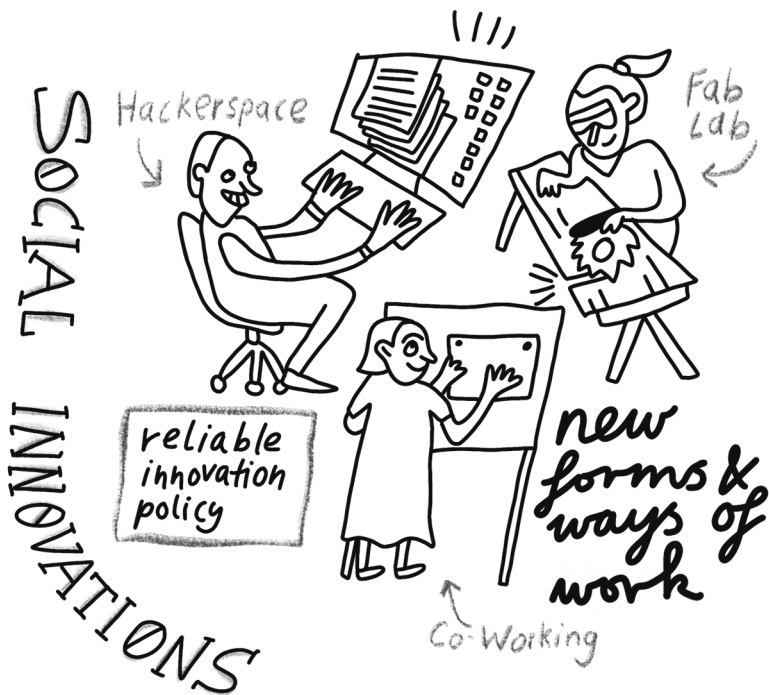 SOCIAL INNOVATIONS
Hackerspace
Fab
Lab
reliable
innovation
policy
new
forms &
ways of
work
Co-Working